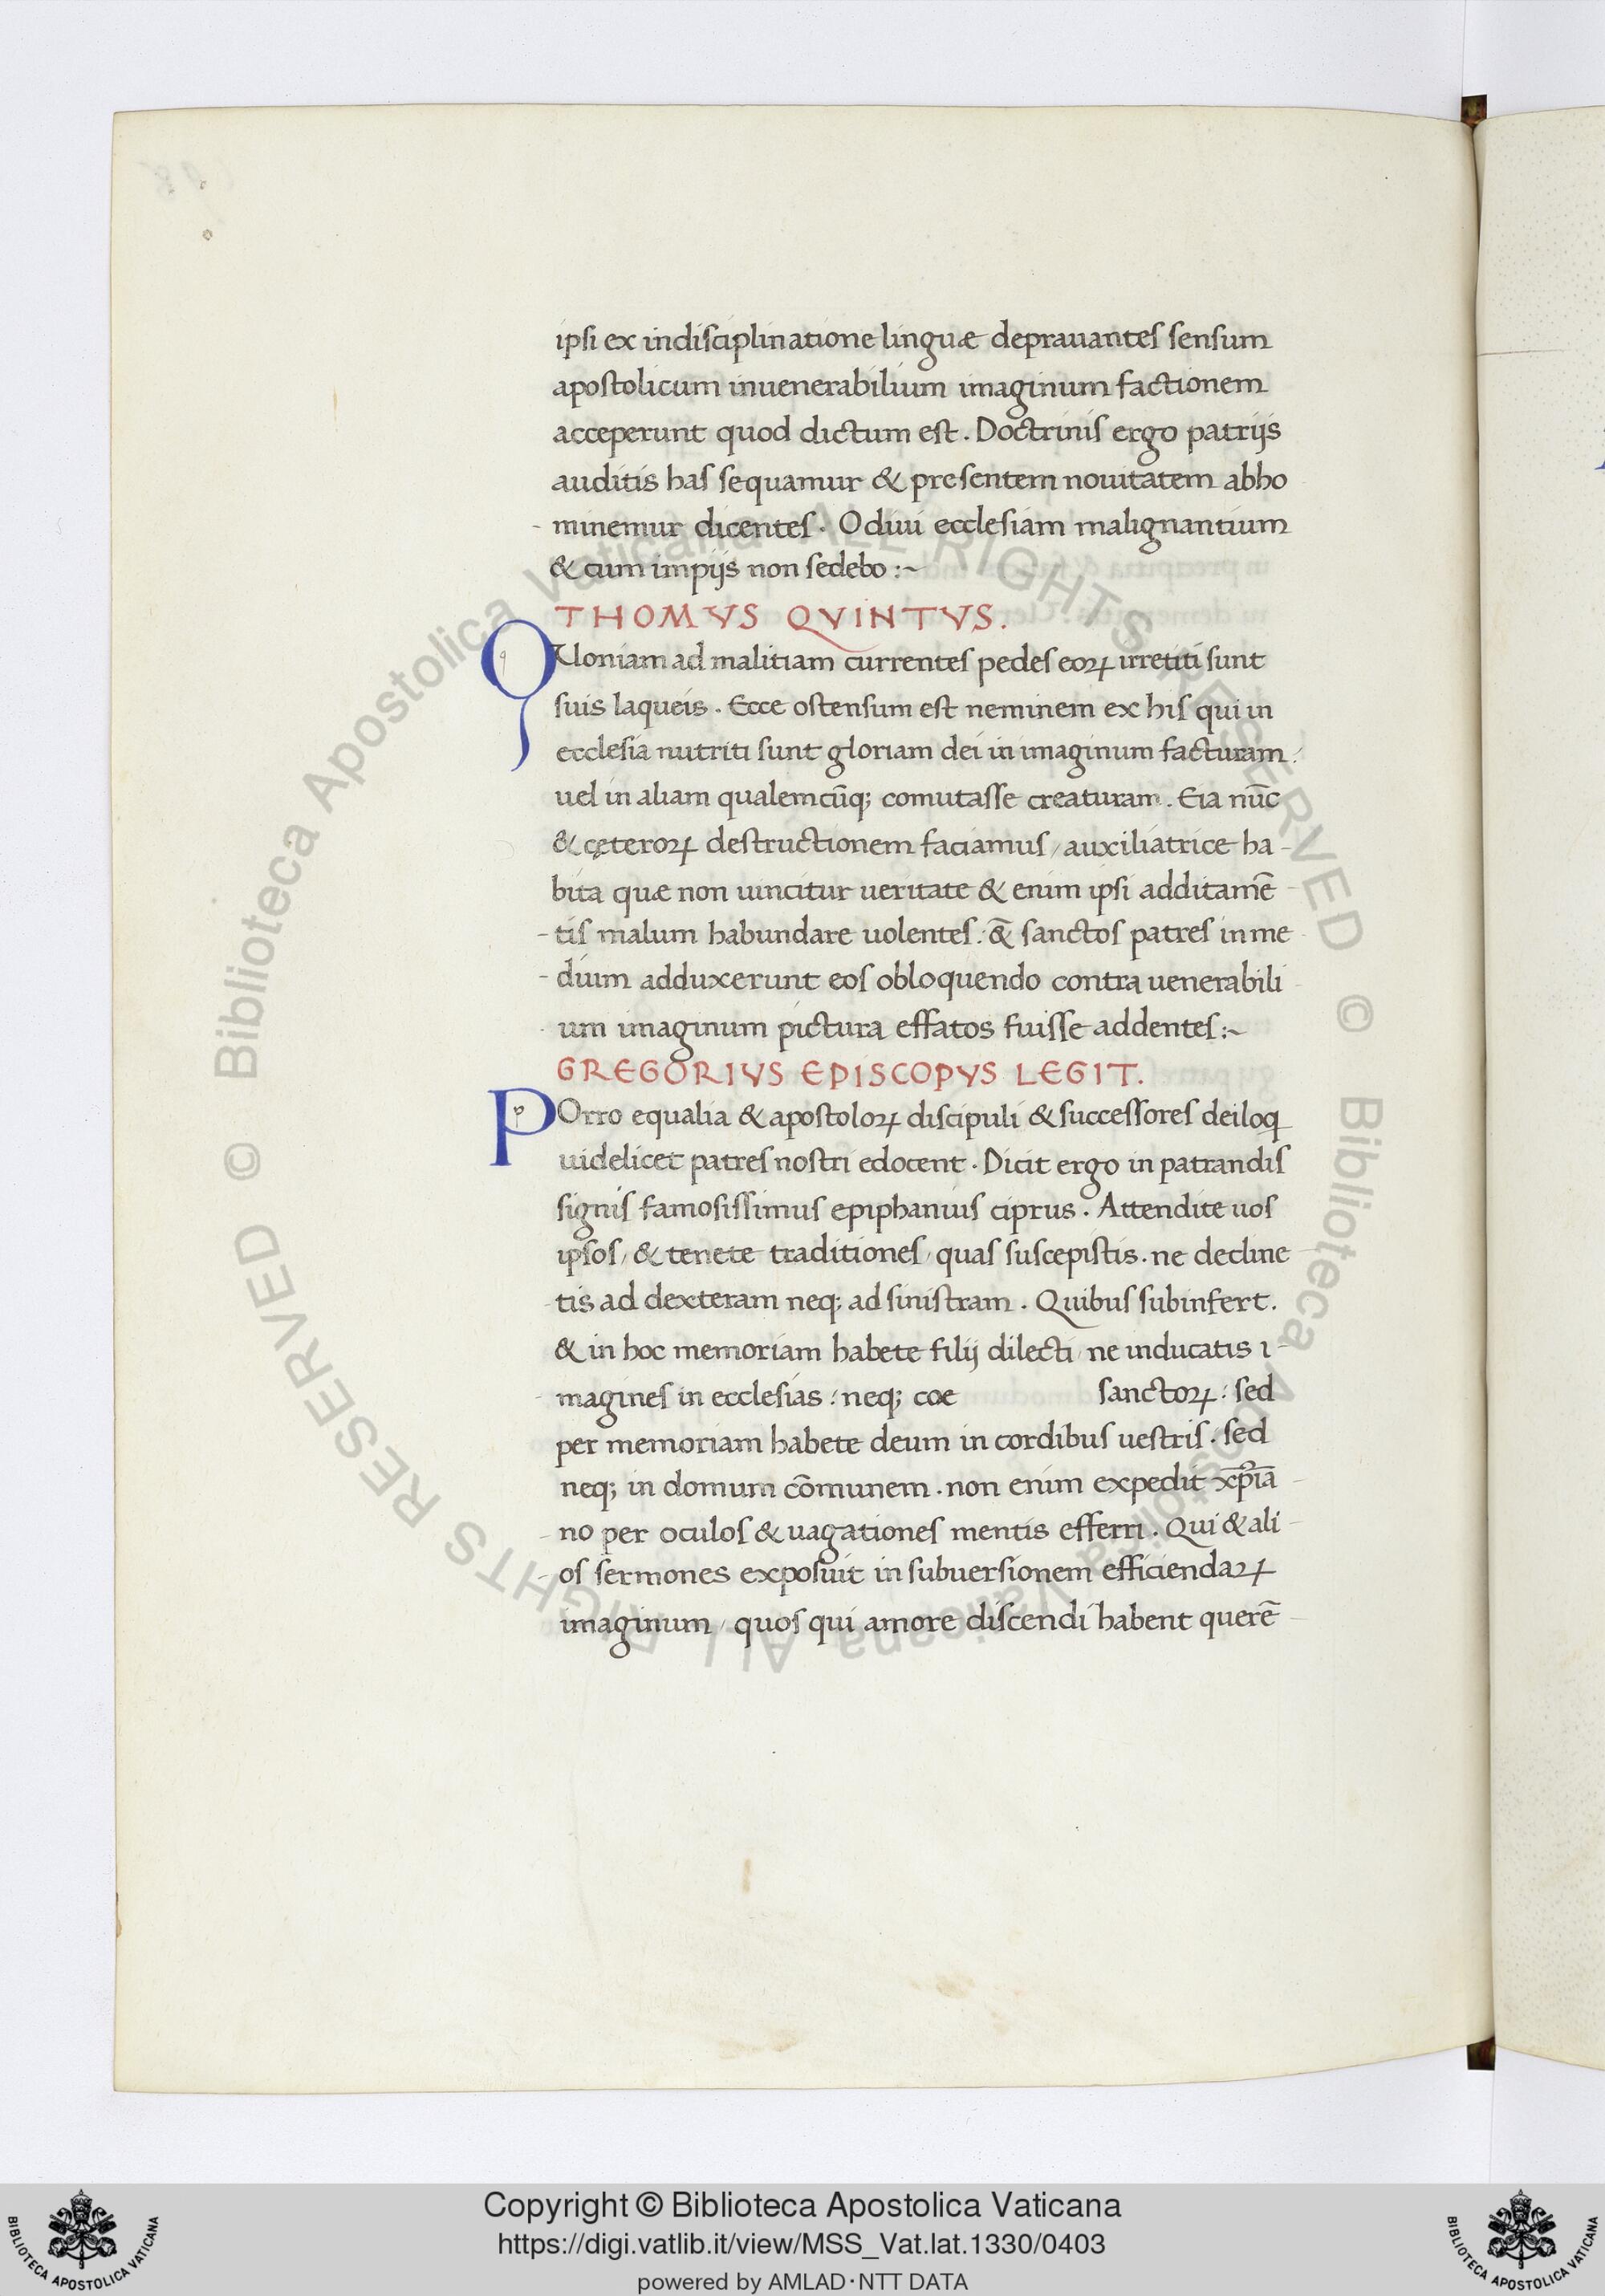 ipsi ex indisciplinatione linguæ deprauantes sensum
apostolicum inuenerabilium imaginum factionem
acceperunt quod dictum est. Doctrinis ergo patrijs
auditis has sequamur & presentem nouitatem abho
-minemur dicentes. Odiui ecclesiam malignantium
& cum impijs non sedebo:~
THOMVS QVINTVS.
QUoniam ad malitiam currentes pedes eoꝝ irretiti sunt
suis laqueis. Ecce ostensum est neminem ex his qui in
ecclesia nutriti sunt gloriam dei in imaginum facturam:
uel in aliam qualemcūq; comutasse creaturam. Eia nūc
& ceteroꝝ destructionem faciamus / auxiliatrice ha-
bita quæ non uincitur ueritate & enim ipsi additamē
-tis malum habundare uolentes: &̄ sanctos patres in me
-dium adduxerunt eos obloquendo contra uenerabili
um imaginum pictura effatos fuisse addentes:~
GREGORIVS EPISCOPVS LEGIT.
POrro equalia & apostoloꝝ discipuli & successores deiloq
uidelicet patres nostri edocent. Dicit ergo in patrandis
signis famosissimus epiphanius ciprus. Attendite uos
ipsos / & tenete traditiones / quas suscepistis. ne decline
-tis ad dexteram neq; ad sinistram. Quibus subinfert.
& in hoc memoriam habete filij dilecti / ne inducatis i-
magines in ecclesias: neq; coe sanctoꝝ: sed
per memoriam habete deum in cordibus uestris. sed
neq; in domum cōmunem. non enim expedit xp̄iā
-no per oculos & uagationes mentis efferri. Qui & ali
-os sermones exposuit in subuersionem efficiendaꝝ
imaginum / quos qui amore discendi habent querē
Copyright © Biblioteca Apostolica Vaticana
https://digi.vatlib.it/view/MSS_Vat.lat.1330/0403
powered by AMLAD·NTT DATA
BIBLIOTECA APOSTOLICA VATICANA
BIBLIOTECA APOSTOLICA VATICANA
© Biblioteca Apostolica Vaticana ALL RIGHTS RESERVED
© Biblioteca Apostolica Vaticana ALL RIGHTS RESERVED